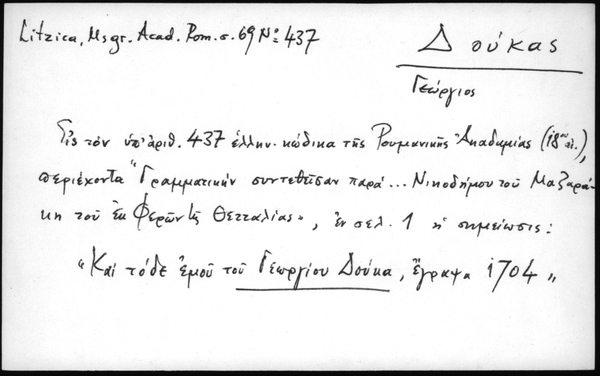 Litzica, Msgr. Acad. Rom. σ. 69 Nº 437
Δούκας
Γεώργιος
Εἰς τὸν ὑπ' ἀριθ. 437 ἑλλην. κώδικα τῆς Ρουμανικῆς Ἀκαδημίας (18ου αἰ.),
περιέχοντα "Γραμματικὴν συντεθεῖσαν παρὰ... Νικοδήμου τοῦ Μαζαρά-
κη τοῦ ἐκ Φερῶν τῆς Θετταλίας", ἐν σελ. 1 ἡ σημείωσις:
"Καὶ τόδε ἐμοῦ τοῦ Γεωργίου Δούκα, ἔγραψα 1704"